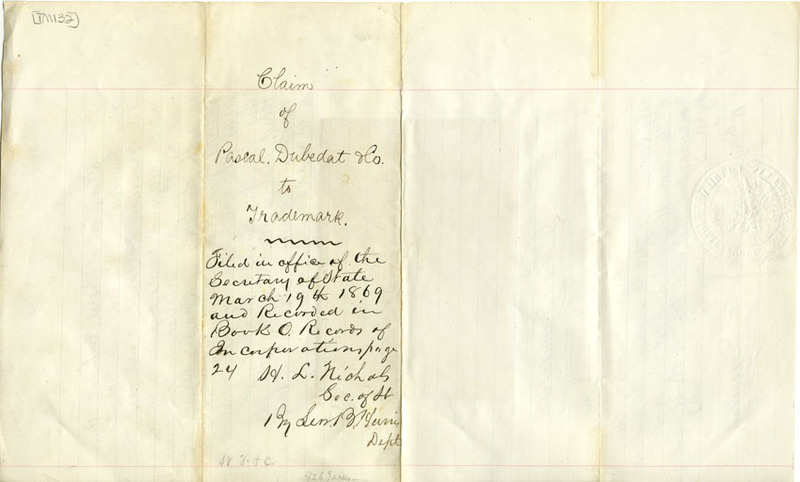 TM132
Claim
of
Pascal, Dubedat & Co.
to
Trademark.
Filed in office of the
Secretary of State
March 19th 1869
and Recorded in
Book O. Records of
Incorporations page
24 H. L. Nichols
Sec. of St
By Geo. B. Harris
Dept